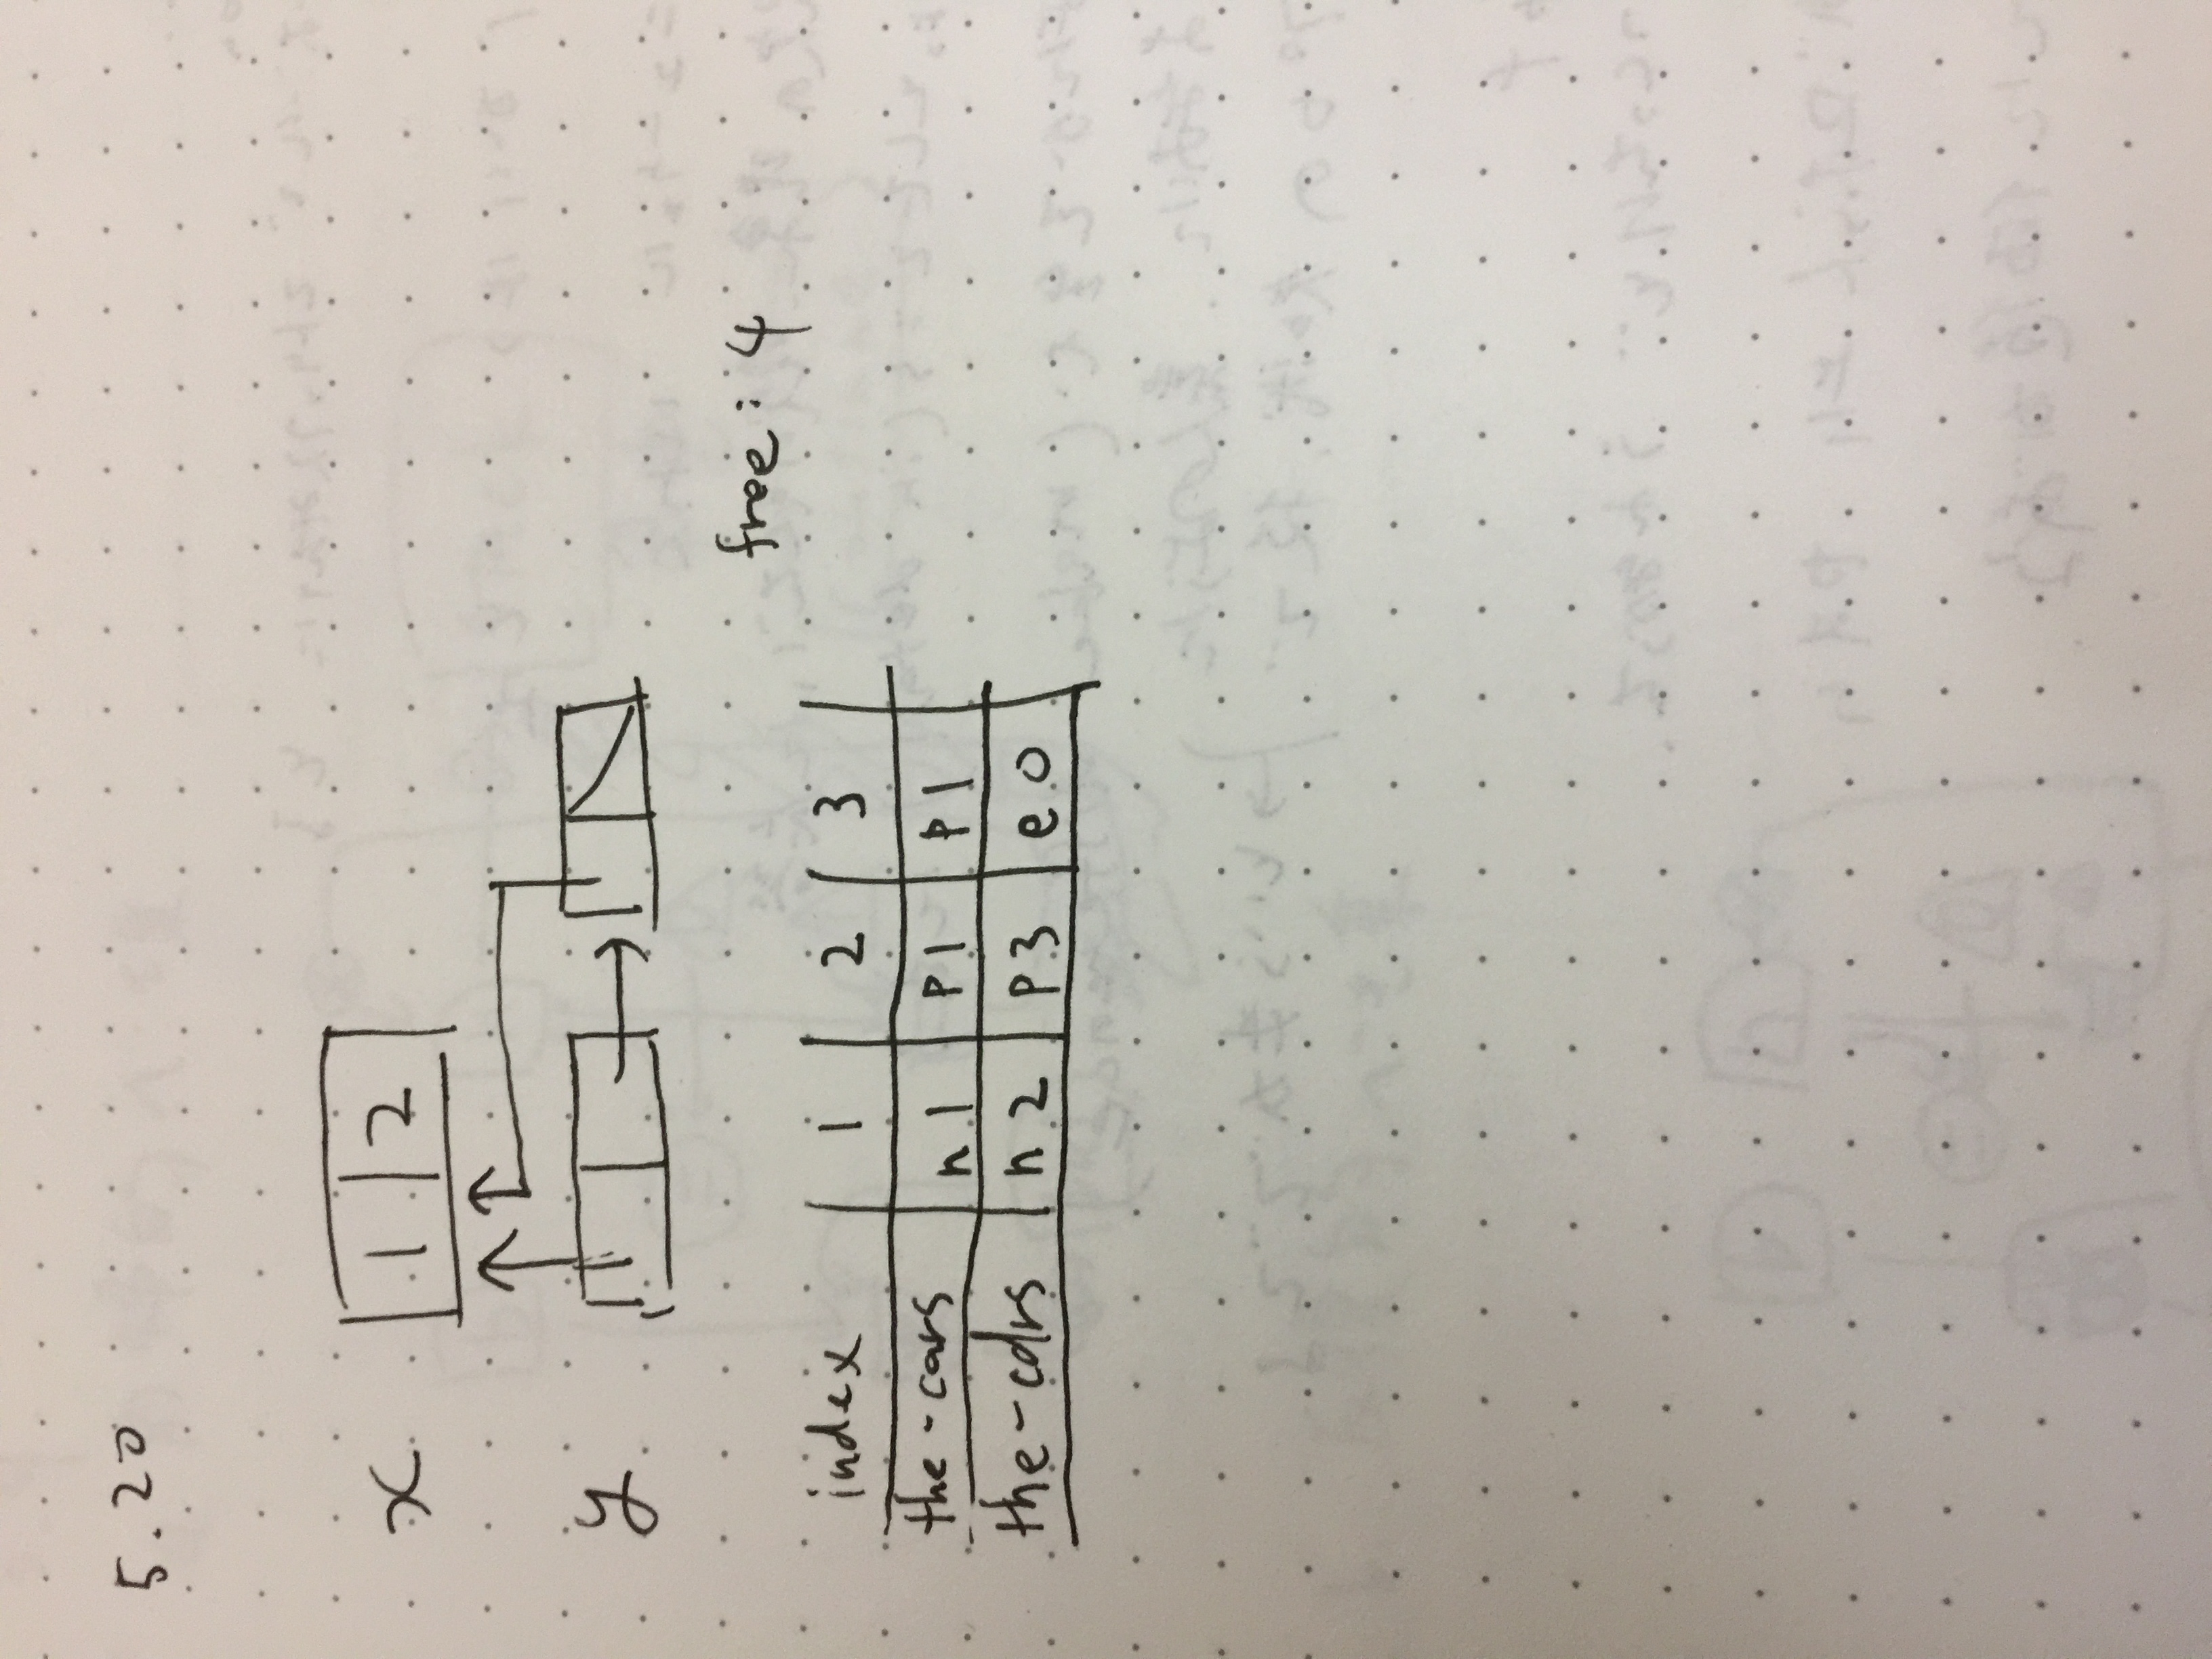 5.20
x 1 2
y
free: 4
index 1 2 3
the-cars n1 p1 p1
the-cdrs n2 p3 e0